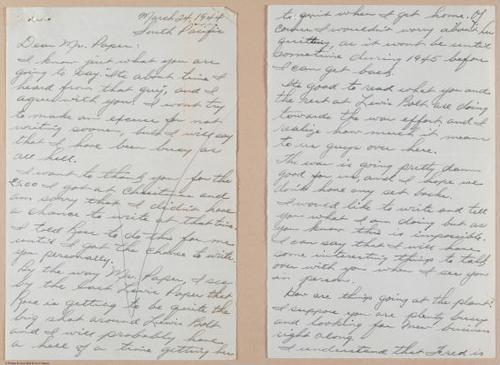 March 24, 1944
South Pacific
Dear Mr. Paper:
I know just what you are
going to say. It's about time I
heard from that guy, and I
agree with you. I won't try
to make an excuse for not
writing sooner, but I will say
that I have been busy as
all hell.
I want to thank you for the
I got at Christmas and
am sorry that I didn't have
a chance to write at that time.
I told Rose to do this for me
until I got the chance to write
you personally.
By the way Mr. Paper, I see
by the last Lewis Paper that
Rose is getting to be quite the
big shot around Lewis Bolt
and I will probably have
a hell of a time getting her
to quit when I get home. Of
course I wouldn't worry about her
quitting, as it wont be until
sometime during 1945 before
I can get back.
It's good to read what you and
the rest at Lewis Bolt are doing
towards the war effort, and I
realize how much it means
to us guys over here.
The war is going pretty damn
good for us, and I hope we
don't have any set backs.
I would like to write and tell
you what I am doing but as
you know this is impossible.
I can say that I will have
some interesting things to talk
over with you when I see you
in person.
How are things going at the plant?
I suppose you are plenty busy
and looking for new business
right along.
I understand that Fred is